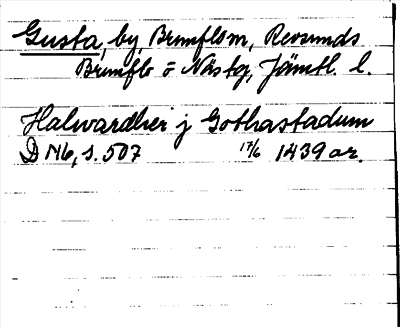 Gusta, by, Brunflo sn, Revsunds
Brunflo o Näs tg, Jämtl. l.
Halwardher j Gothastadum
D N16, s. 507 17/6 1439 or.